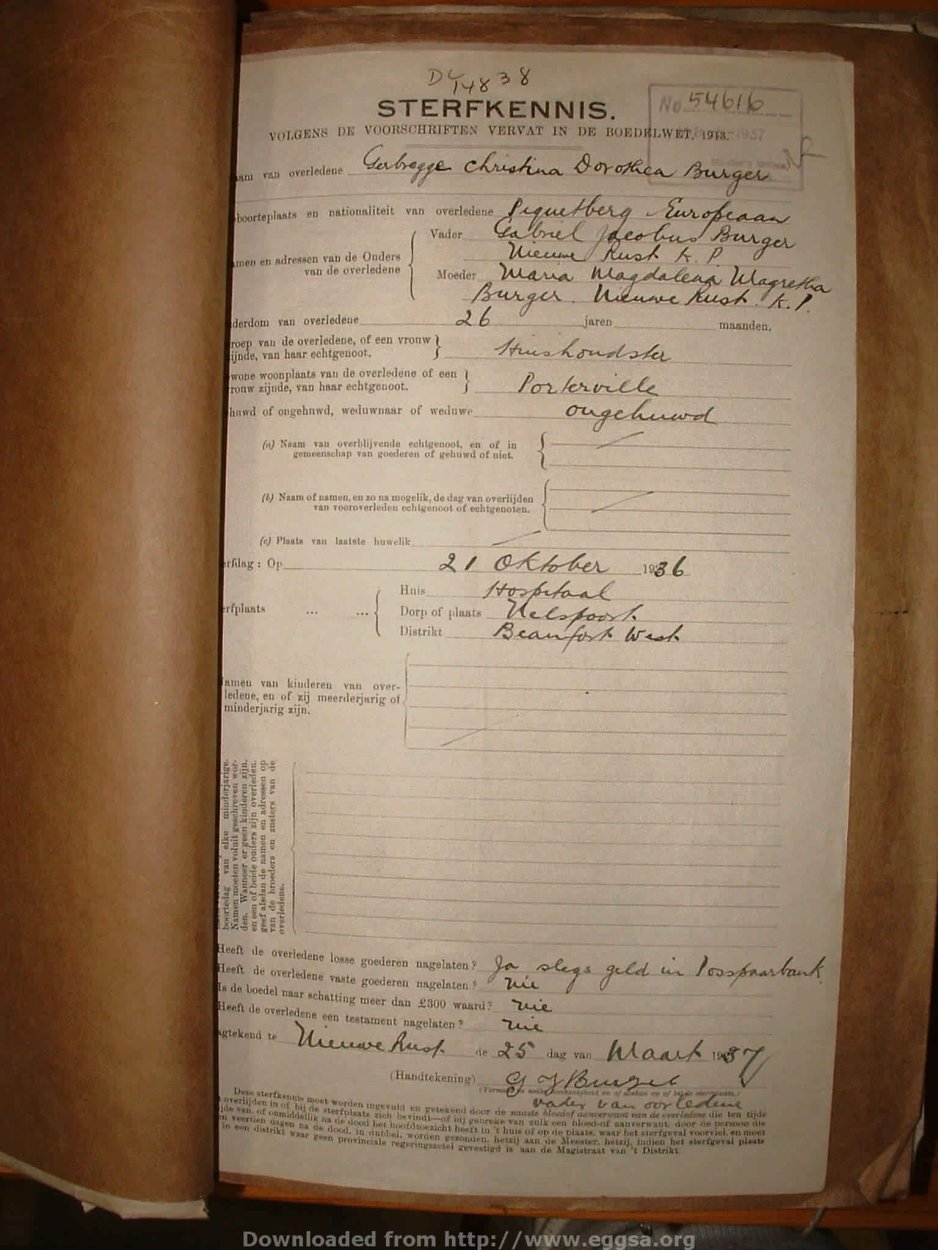 14838
STERFKENNIS.
No 54616
VOLGENS DE VOORSCHRIFTEN VERVAT IN DE BOEDELWET, 1913.
aam van overledene Gerbregge Christina Dorothea Burger
boorteplaats en nationaliteit van overledene Piquetberg Europeaan
amen en adressen van de Ouders van de overledene
Vader Gabriel Jacobus Burger
Nieuwe Rust K. P.
Moeder Maria Magdalena Magretha
Burger. Nieuwe Rust. K. P.
derdom van overledene 26 jaren maanden.
roep van de overledene, of een vrouw
ijnde, van haar echtgenoot. Huishoudster
wone woonplaats van de overledene of een
rouw zijnde, van haar echtgenoot. Porterville
huwd of ongehuwd, weduwnaar of weduwe ongehuwd
(a) Naam van overblijvende echtgenoot, en of in
gemeenschap van goederen of gehuwd of niet.
(b) Naam of namen, en zo na mogelik, de dag van overlijden
van vooroverleden echtgenoot of echtgenoten.
(c) Plaats van laatste huwelik
erfdag : Op 21 Oktober 1936
erfplaats ... ...
Huis Hospitaal
Dorp of plaats Nelspoort
Distrikt Beaufort West
amen van kinderen van over-
ledene, en of zij meerderjarig of
minderjarig zijn.
boortedag van elke minderjarige.
Namen moeten voluit geschreven wor-
den. Wanneer er geen kinderen zijn,
en een of beide ouders zijn overleden,
geef alsdan de namen en adressen op
van de broeders en zusters van de
overledene.
Heeft de overledene losse goederen nagelaten? Ja slegs geld in Posspaarbank
Heeft de overledene vaste goederen nagelaten? Nie
Is de boedel naar schatting meer dan £300 waard? Nie
Heeft de overledene een testament nagelaten? Nie
agtekend te Nieuwe Rust de 25 dag van Maart 1937
(Handtekening) G J Burger
vader van oorledene
Deze sterfkennis moet worden ingevuld en getekend door de naaste bloedof aanverwant van de overledene die ten tijde
overlijden in of bij de sterfplaats zich bevindt—of bij gebreke van zulk een bloed-of aanverwant, door de persoon die
ijde van, of onmiddellik na de dood het hoofdtoezicht heeft in 't huis of op de plaats, waar het sterfgeval voorviel, en moet
n veertien dagen na de dood, in dubbel, worden gezonden, hetzij aan de Meester, hetzij, indien het sterfgeval plaats
in een distrikt waar geen provinciale regeringszetel gevestigd is aan de Magistraat van 't Distrikt
Downloaded from http://www.eggsa.org